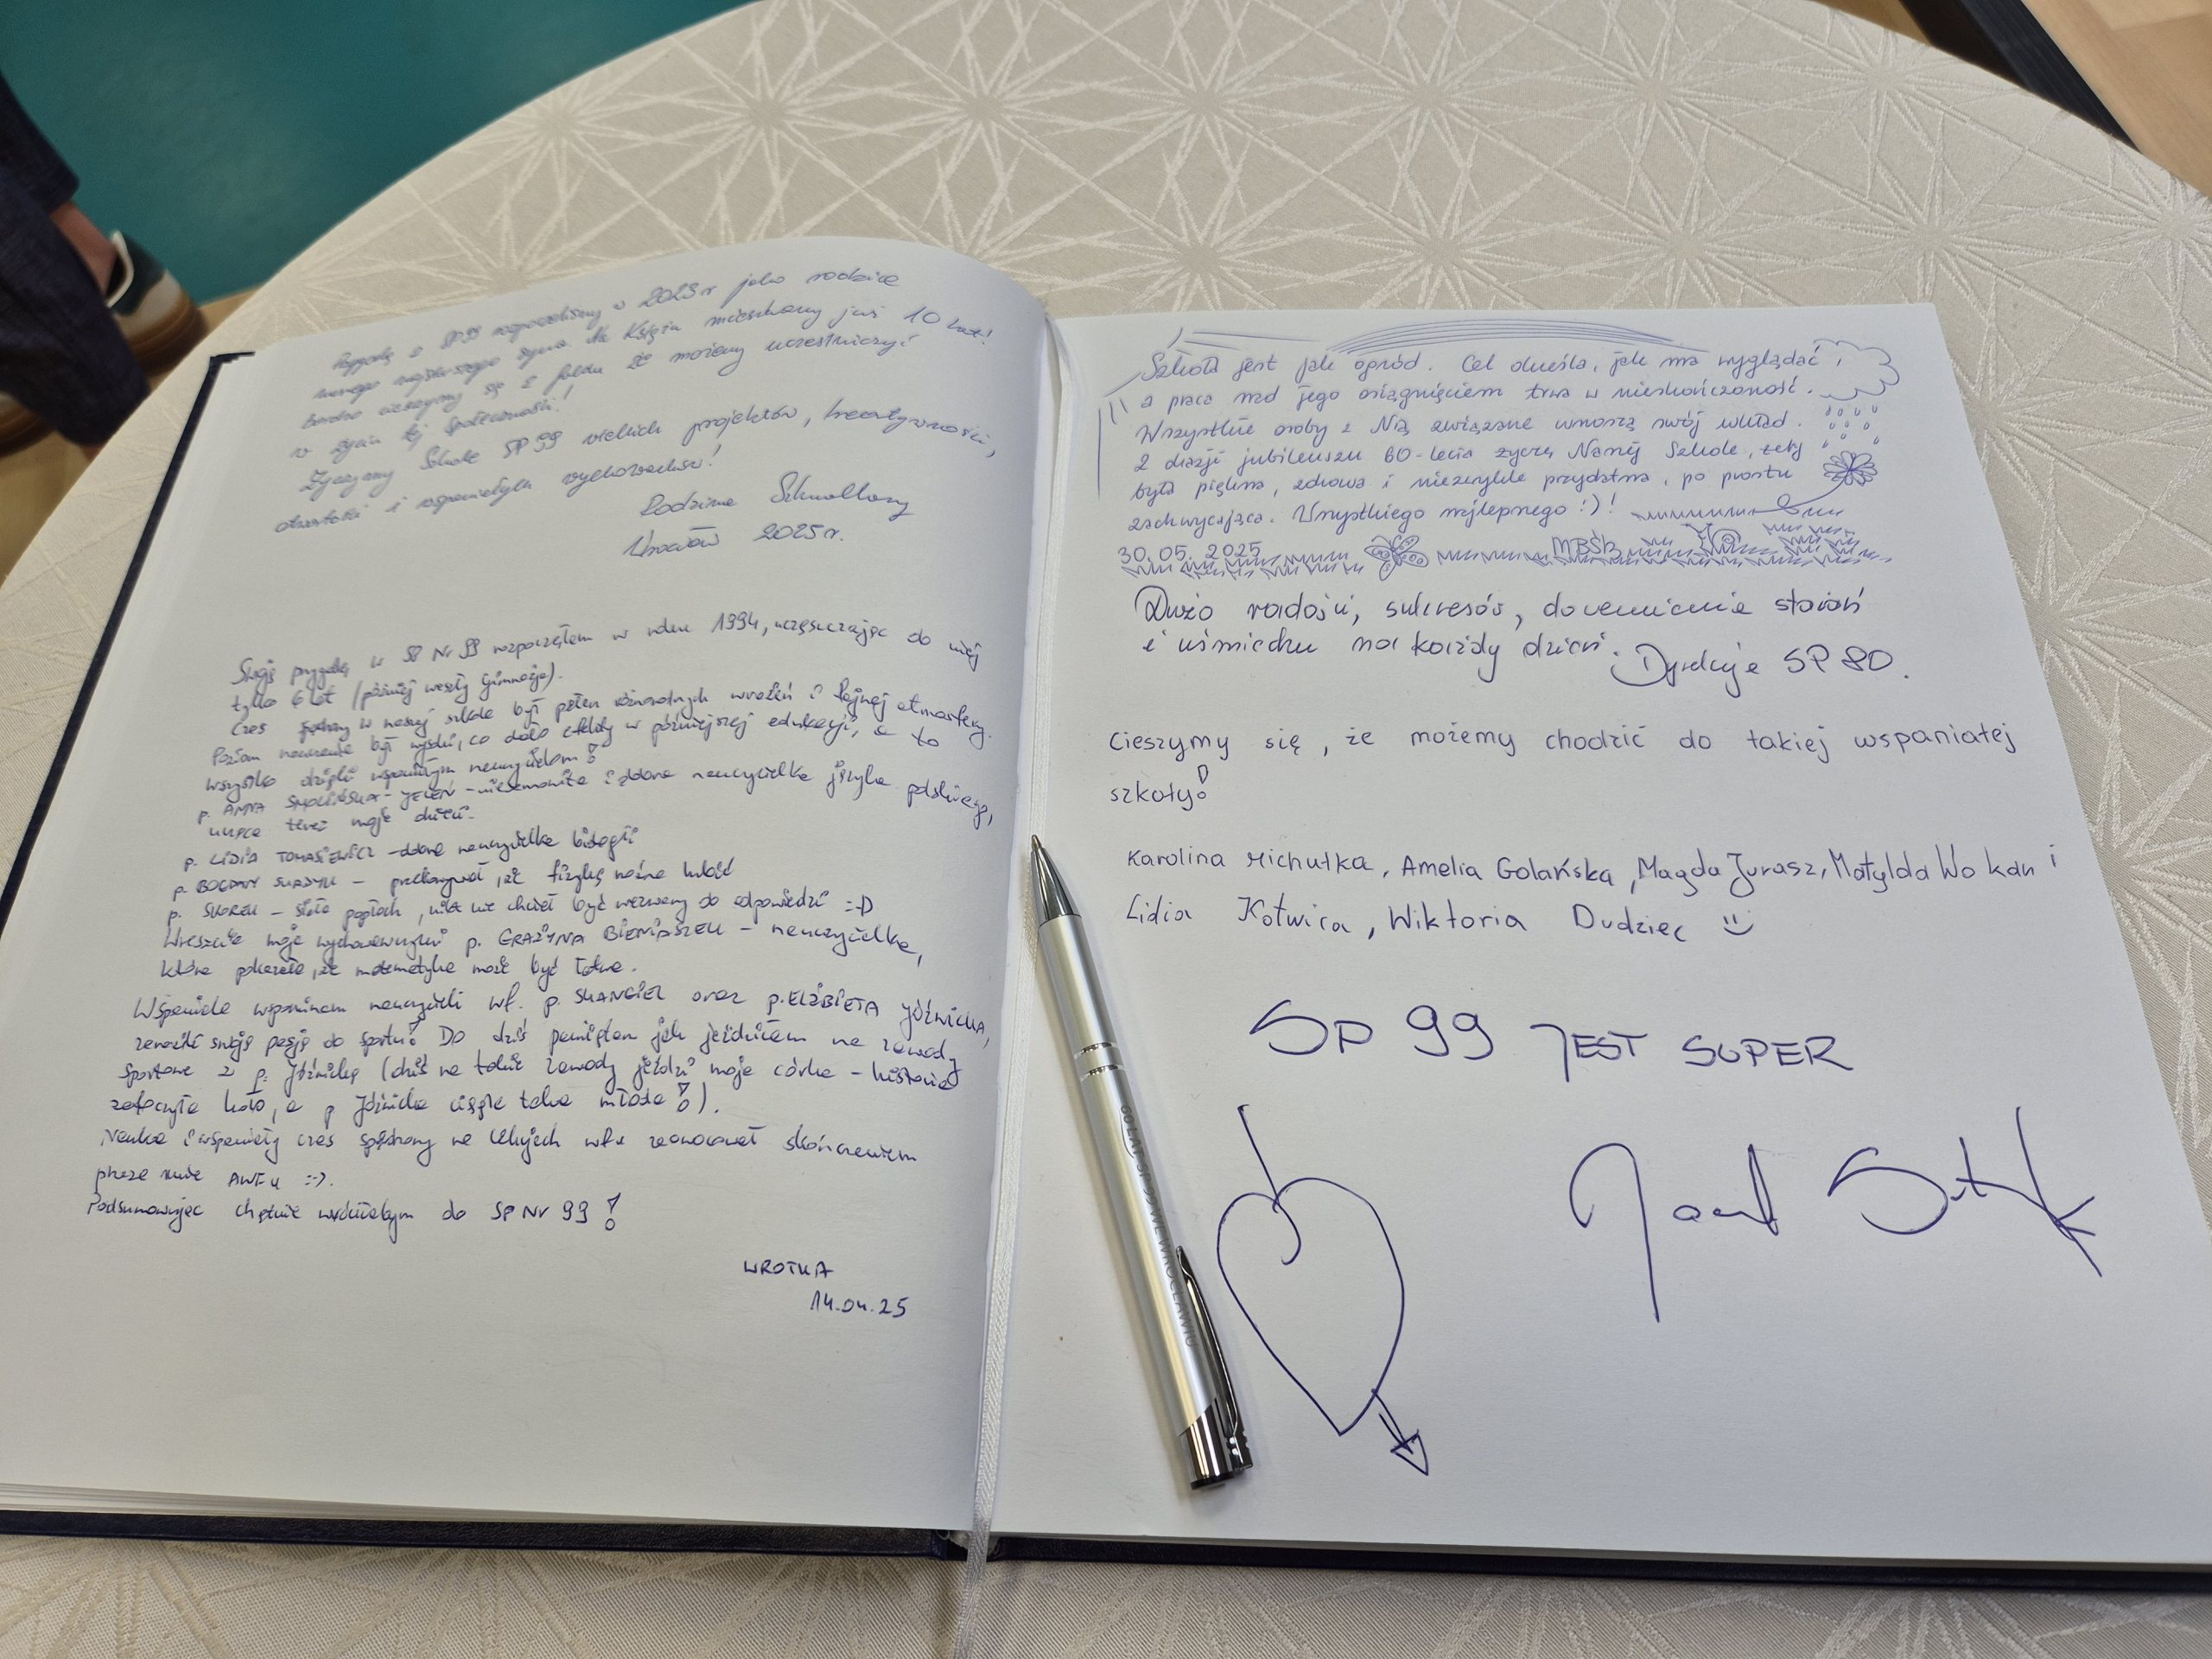 Przygodę z SP 99 rozpoczęliśmy w 2023 r jako rodzice
naszego najstarszego syna. Na Księżu mieszkamy już 10 lat!
bardzo cieszymy się z faktu że możemy uczestniczyć
w życiu tej społeczności!
Życzymy Szkole SP 99 wielkich projektów, kreatywności,
otwartości i wspaniałych wychowanków!
Rodzina
Wrocław 2025 r.
Swoją przygodę w SP Nr 99 rozpocząłem w roku 1994, uczęszczając do niej
tylko 6 lat (później weszły gimnazja).
Czas spędzony w naszej szkole był pełen różnorodnych wrażeń i fajnej atmosfery.
Poziom nauczania był wysoki, co dało efekty w późniejszej edukacji, a to
wszystko dzięki wspaniałym nauczycielom!
p. ANNA SMOLIŃSKA-JELEŃ - niesamowita i dobra nauczycielka języka polskiego,
uczące teraz moje dzieci.
p. LIDIA TOMASIEWICZ - dobra nauczycielka biologii
p. BOGDAN - przekonywał, że fizykę można lubić
p. SKOREK - siała popłoch, nikt nie chciał być wezwany do odpowiedzi :-D
Wreszcie moja wychowawczyni p. GRAŻYNA BIENIASZEK - nauczycielka,
która pokazała, że matematyka może być łatwa.
Wspaniale wspominam nauczycieli wf. p. SKANGIEL oraz p. ELŻBIETA JÓŹWICKA,
zarazili swoją pasją do sportu! Do dziś pamiętam jak jeździłem na zawody
sportowe z p. Jóźwicką (dziś na takie zawody jeździ moja córka - historia
zatoczyła koło, a p Jóźwicka ciągle taka młoda!).
Nauka i wspaniały czas spędzony na lekcjach wf-u zaowocował skończeniem
przeze mnie AWF-u :-).
Podsumowując chętnie wróciłbym do SP Nr 99!
WROTKA
14.04.25
Szkoła jest jak ogród. Cel określa, jak ma wyglądać,
a praca nad jego osiągnięciem trwa w nieskończoność.
Wszystkie osoby z Nią związane wnoszą swój wkład.
Z okazji jubileuszu 60-lecia życzę Naszej Szkole, żeby
była piękna, zdrowa i niezwykle przydatna, po prostu
zachwycająca. Wszystkiego najlepszego :)!
30.05.2025 MBSB
Dużo radości, sukcesów, docenienia starań
i uśmiechu na każdy dzień. Dyrekcja SP 80.
Cieszymy się, że możemy chodzić do takiej wspaniałej
szkoły!
Karolina Michułka, Amelia Golańska, Magda Jurasz, Matylda Wokan i
Lidia Kotwica, Wiktoria Dudziec
SP 99 JEST SUPER
60 LAT SP 99 WE WROCŁAWIU